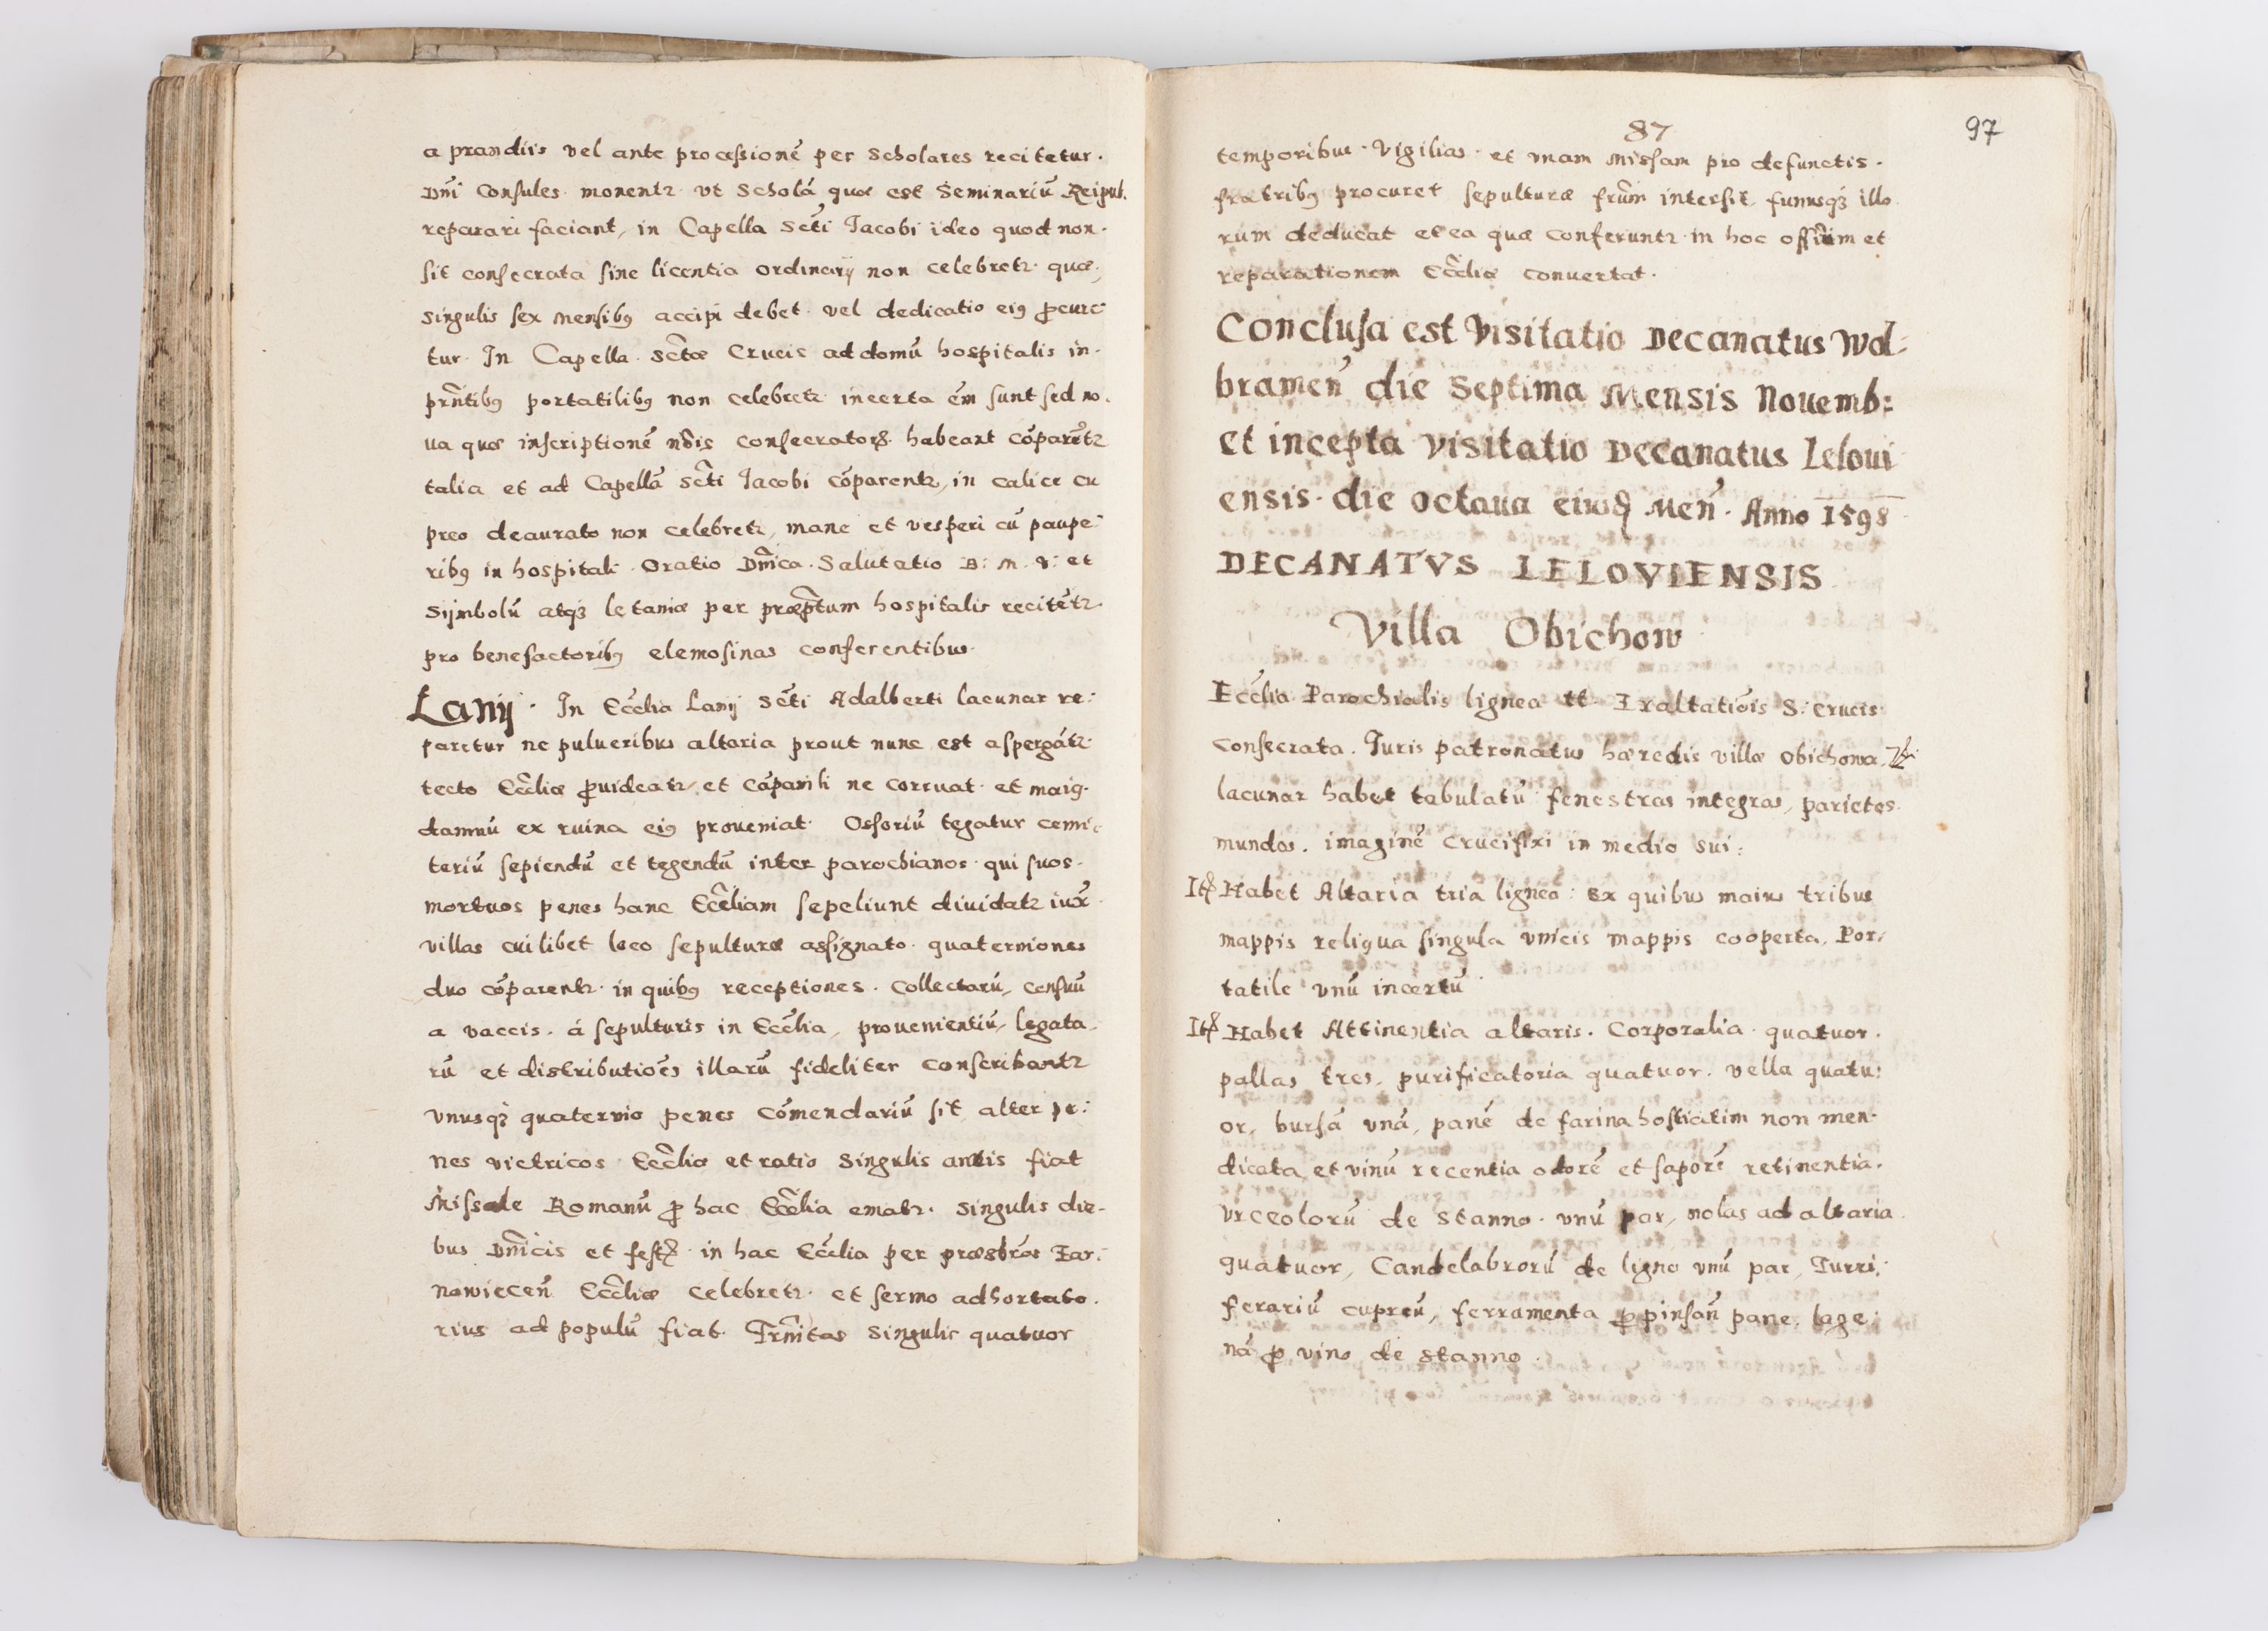 a prandiis vel ante processionē per scholares recitetur.
Dnī Consules monentr vt Scholā quæ est Seminariū Reipub.
reparari faciant, in Capella Scti Jacobi ideo quod non
sit consecrata sine licentia ordinarij non celebretr quæ
singulis sex mensibꝯ accipi debet vel dedicatio eiꝯ ꝓcure
tur. In Capella Sctæ Crucis ad domū hospitalis in
prntibꝯ portatilibꝯ non celebretr incerta em sunt sed no
ua quæ inscriptionē nois consecratorꝭ habeant cōparētr
talia et ad Capellā Scti Jacobi cōparentr, in calice cu
preo deaurato non celebretr, mane et vesperi cū paupe
ribꝯ in hospitali Oratio Dmica Salutatio B: M: V: et
Sijmbolū atqꝫ letaniæ per præptum hospitalis recitētr
pro benefactoribꝯ elemosinas conferentibus.
Lanij. In Ecclia Lanij Scti Adalberti lacunar re:
paretur ne pulueribus altaria prout nunc est aspergātr
tecto Eccliæ ꝓuideatr, et cāpanili ne corruat et maiꝯ
damnū ex ruina eiꝯ proueniat. Ossoriū tegatur cemi
teriū sepiendū et tegendū inter parochianos qui suos
mortuos penes hanc Eccliam sepeliunt diuidatr iux
villas cuilibet loco sepulturæ assignato quaterniones
duo cōparentr in quibꝯ receptiones collectarū, censuū
a vaccis. á sepulturis in Ecclia, prouenientiū, legata
rū et distributioēs illarū fideliter conscribantr
vnusqꝫ quaternio penes Cōmendariū sit alter pe:
nes vietricos Eccliæ et ratio singulis annis fiat
Missale Romanū ꝓ hac Ecclia ematr. Singulis die-
bus Dnicis et festꝭ in hac Ecclia per præsbros Zar:
nowiecen Eccliæ celebretr et sermo adhortato
rius ad populū fiat. Frnitas singulis quatuor
87
97
temporibus Vigilias et vnam Missam pro defunctis
fratribꝯ procuret sepulturæ frūm intersit, funusqꝫ illo
rum deducat et ea quæ conferuntr in hoc offium et
reparationem Eccliæ conuertat.
Conclusa est Visitatio Decanatus Wol:
bramen die Septima Mensis Nouemb:
et incepta Visitatio Decanatus Leloui
ensis die Octaua eiusdꝭ Men. Anno 1598
DECANATVS LELOVIENSIS
Villa Obichow
Ecclia Parochialis lignea tt Exaltatiois S: Crucis
consecrata. Juris patronatus hæredis villæ Obichowa,
lacunar habet tabulatū fenestras integras, parietes
mundos. imaginē Crucifixi in medio sui:
Itꝭ Habet Altaria tria lignea: ex quibus maius tribus
mappis reliqua singula vnicis mappis cooperta, Por/
tatile vnū incertū
Itꝭ Habet Attinentia altaris. Corporalia quatuor
pallas tres, purificatoria quatuor. vella quatu:
or, bursā vnā, panē de farina hostiatim non men
dicata, et vinū recentia odorē et saporē retinentia.
Vrceolorū de stanno vnū par, nolas ad altaria
quatuor, Candelabrorū de ligno vnū par, Turri:
ferariū cupreū, ferramenta ꝓ pinsan pane, lage:
nā ꝓ vino de stanno.